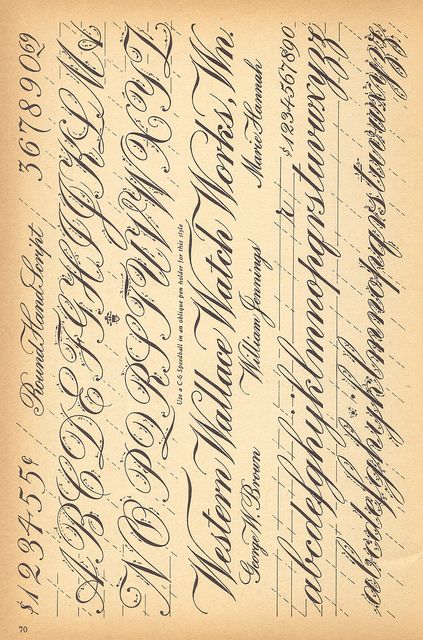 $123455¢ Round Hand Script 367890
A B C D E F G H I J K L M
N O P Q R S T U V W X Y Z
Use a C-6 Speedball in an oblique pen holder for this style
Western Wallace Watch Works, Wn.
George W. Brown William Jennings Marie Hannah
r $1234567890.
abcdefghijklmnopqrstuvwxyzz
abcdefghijklmnopqrstuvwxyzz
70